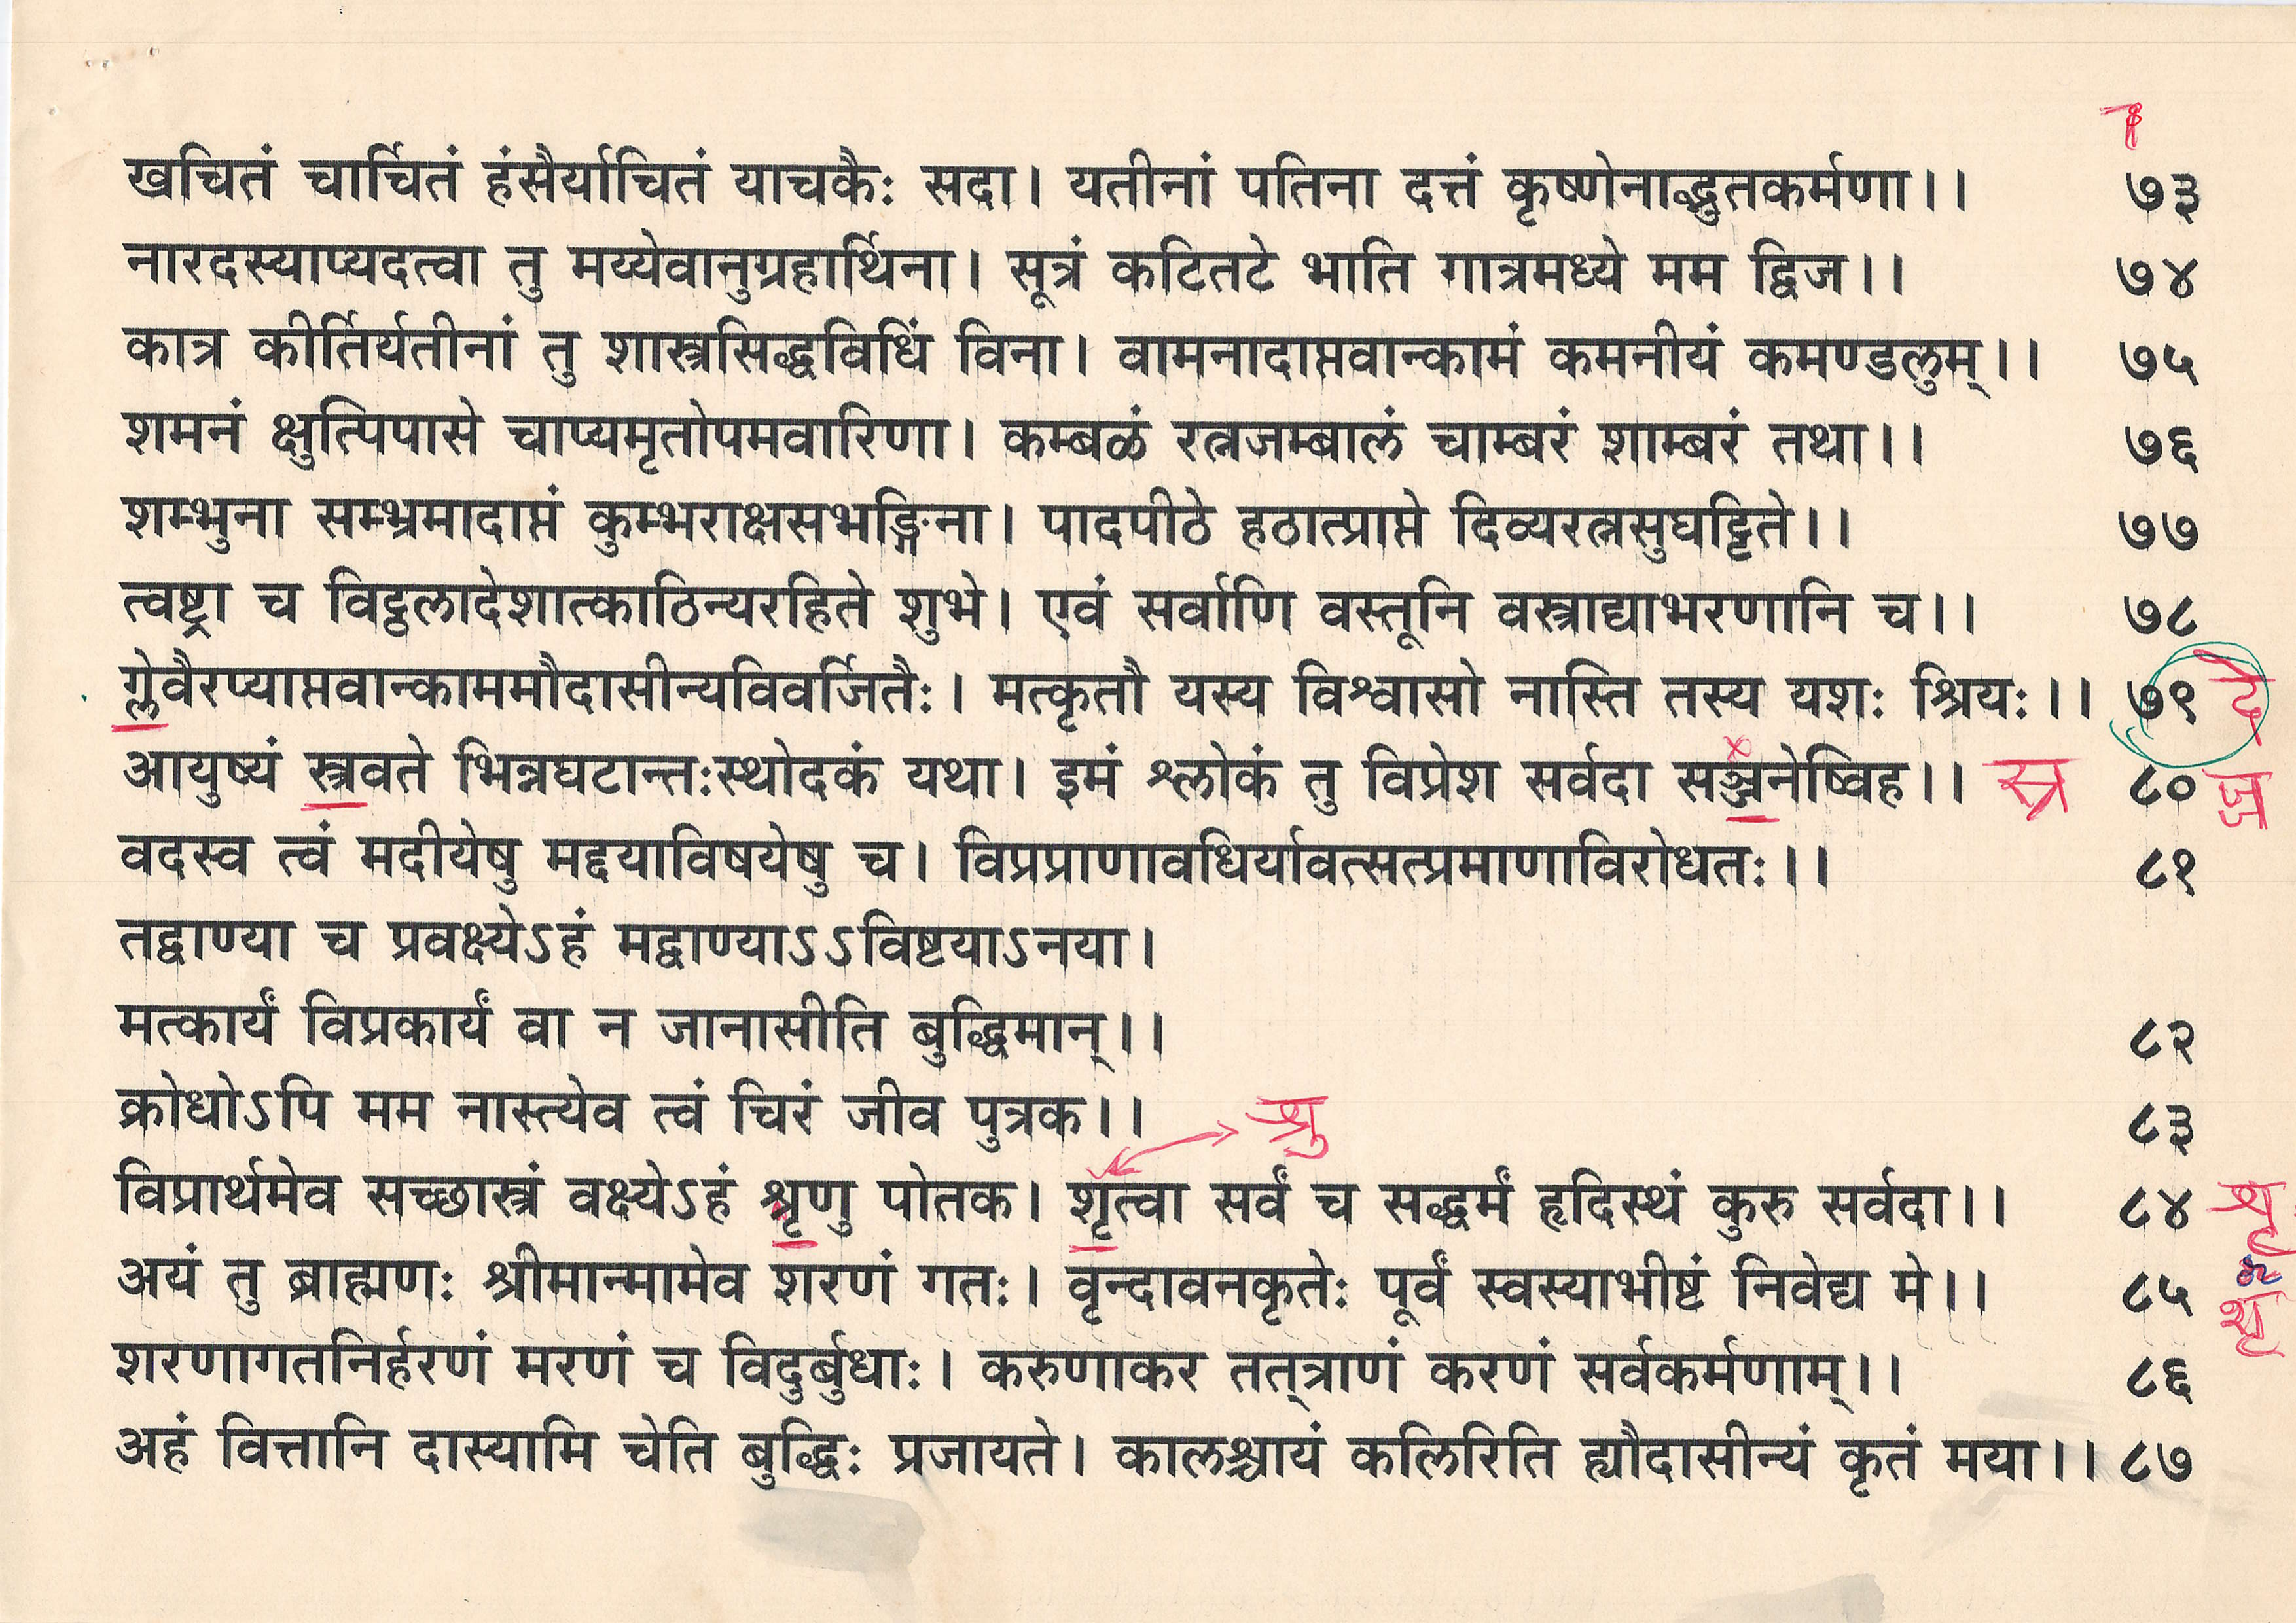 खचितं चार्चितं हंसैर्याचितं याचकैः सदा। यतीनां पतिना दत्तं कृष्णेनाद्भुतकर्मणा।। ७३
नारदस्याप्यदत्वा तु मय्येवानुग्रहार्थिना। सूत्रं कटितटे भाति गात्रमध्ये मम द्विज।। ७४
कात्र कीर्तिर्यतीनां तु शास्त्रसिद्धविधिं विना। वामनादाप्तवान्कामं कमनीयं कमण्डलुम्।। ७५
शमनं क्षुत्पिपासे चाप्यमृतोपमवारिणा। कम्बळं रत्नजम्बालं चाम्बरं शाम्बरं तथा।। ७६
शम्भुना सम्भ्रमादाप्तं कुम्भराक्षसभङ्गिना। पादपीठे हठात्प्राप्ते दिव्यरत्नसुघट्टिते।। ७७
त्वष्ट्रा च विट्ठलादेशात्काठिन्यरहिते शुभे। एवं सर्वाणि वस्तूनि वस्त्राद्याभरणानि च।। ७८
ग्लेवैरप्याप्तवान्काममौदासीन्यविवर्जितैः। मत्कृतौ यस्य विश्वासो नास्ति तस्य यशः श्रियः।। ७९ दे
आयुष्यं स्त्रवते भिन्नघटान्तःस्थोदकं यथा। इमं श्लोकं तु विप्रेश सर्वदा सञ्जनेष्विह।। स्र ८० ज्ज
वदस्व त्वं मदीयेषु मद्दयाविषयेषु च। विप्रप्राणावधिर्यावत्सत्प्रमाणाविरोधतः।। ८१
तद्वाण्या च प्रवक्ष्येऽहं मद्वाण्याऽऽविष्टयाऽनया।
मत्कार्यं विप्रकार्यं वा न जानासीति बुद्धिमान्।। ८२
क्रोधोऽपि मम नास्त्येव त्वं चिरं जीव पुत्रक।। श्रु ८३
विप्रार्थमेव सच्छास्त्रं वक्ष्येऽहं श्रृणु पोतक। शृत्वा सर्वं च सद्धर्मं हृदिस्थं कुरु सर्वदा।। ८४ शृ
अयं तु ब्राह्मणः श्रीमान्मामेव शरणं गतः। वृन्दावनकृतेः पूर्वं स्वस्याभीष्टं निवेद्य मे।। ८५ शृ
शरणागतनिर्हरणं मरणं च विदुर्बुधाः। करुणाकर तत्त्राणं करणं सर्वकर्मणाम्।। ८६
अहं वित्तानि दास्यामि चेति बुद्धिः प्रजायते। कालश्चायं कलिरिति ह्यौदासीन्यं कृतं मया।। ८७